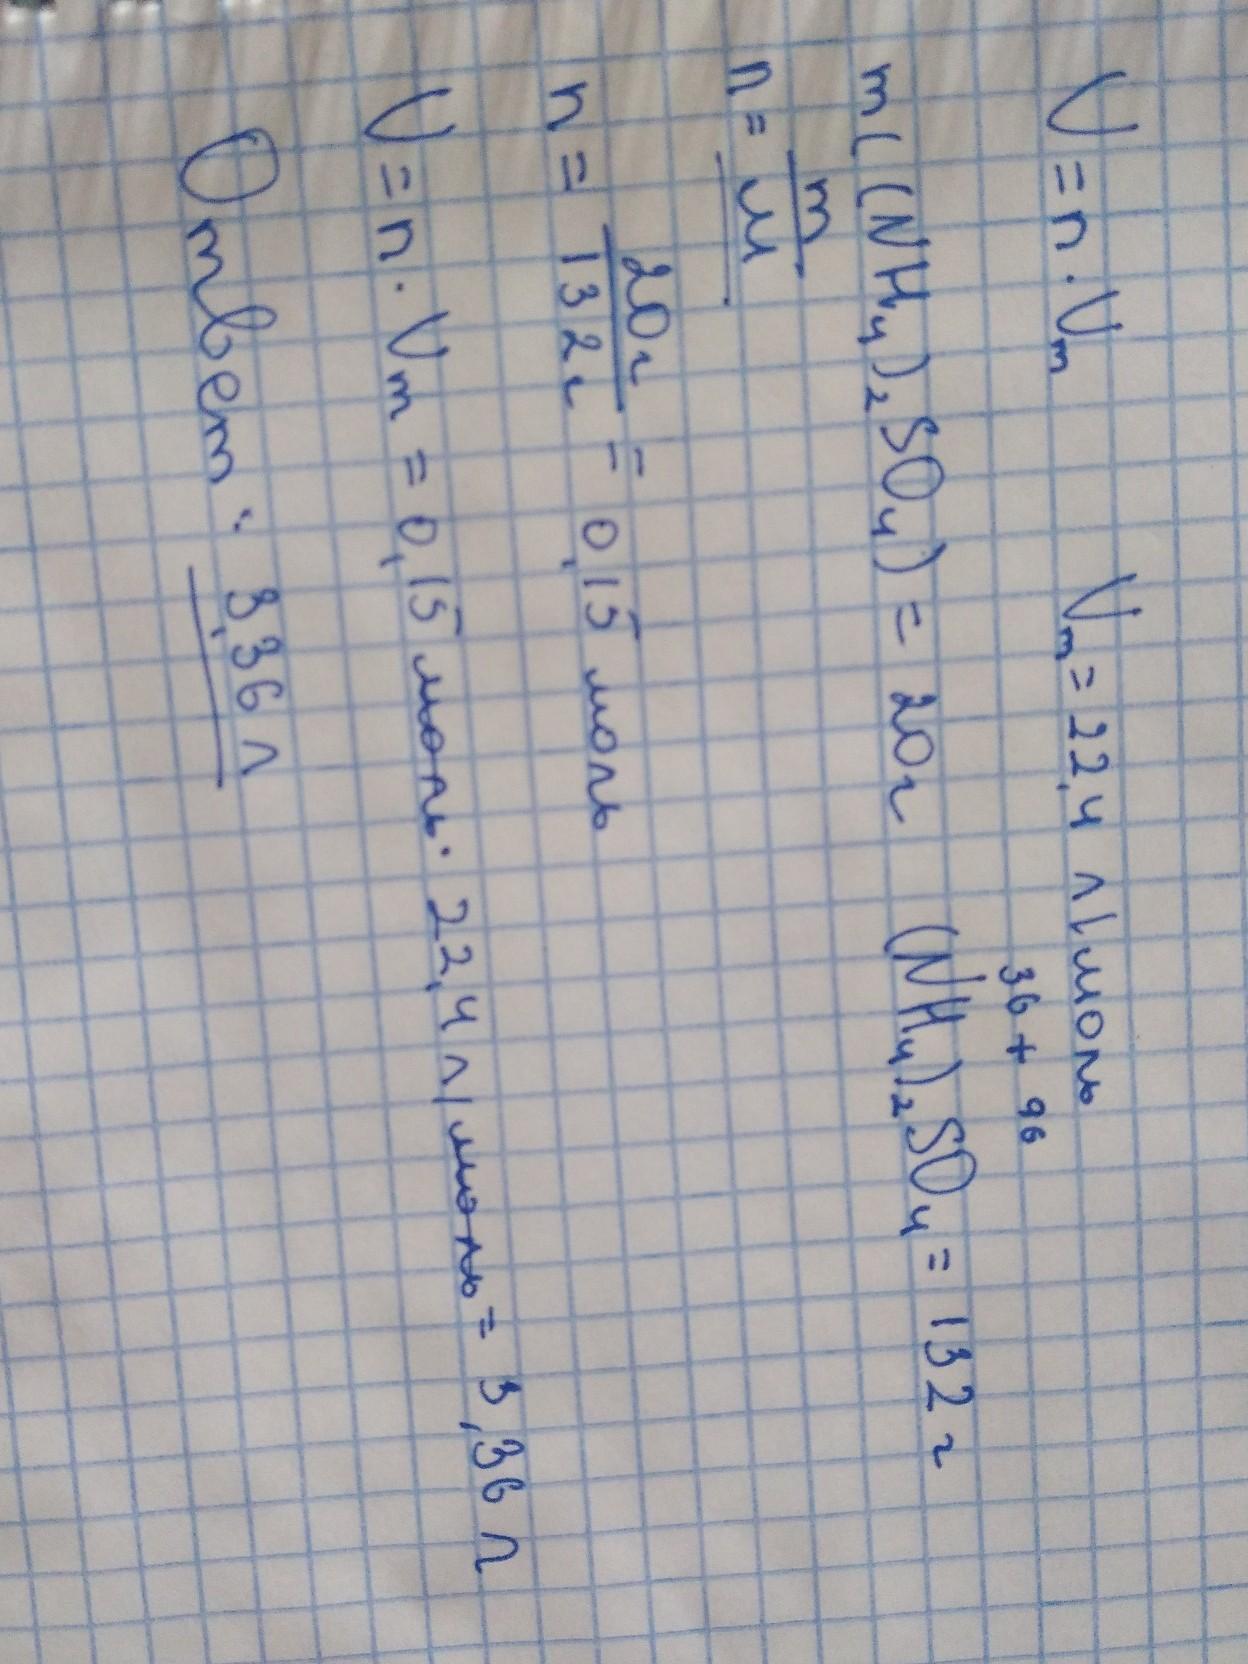 V = n · Vm Vm = 22,4 л/моль
36 + 96
m((NH4)2SO4) = 20г (NH4)2SO4 = 132 г
n = m/M
n = 20г/132г = 0,15 моль
V = n · Vm = 0,15 моль · 22,4 л/моль = 3,36 л
Ответ: 3,36 л